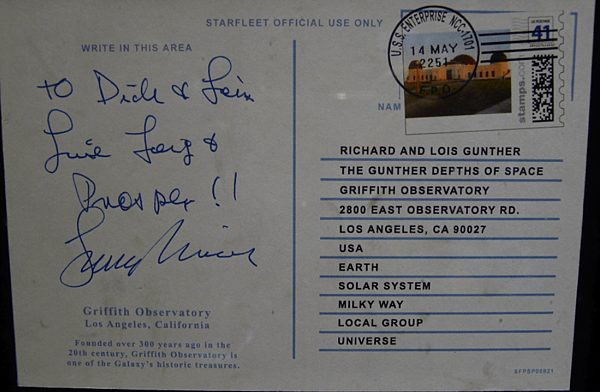 STARFLEET OFFICIAL USE ONLY
WRITE IN THIS AREA
To Dick & Lois
Live Long &
Prosper!!
U.S.S. ENTERPRISE NCC-1701
14 MAY
2251
F.P.O.
41
stamps.com
NAM
RICHARD AND LOIS GUNTHER
THE GUNTHER DEPTHS OF SPACE
GRIFFITH OBSERVATORY
2800 EAST OBSERVATORY RD.
LOS ANGELES, CA 90027
USA
EARTH
SOLAR SYSTEM
MILKY WAY
LOCAL GROUP
UNIVERSE
Griffith Observatory
Los Angeles, California
Founded over 300 years ago in the
20th century, Griffith Observatory is
one of the Galaxy's historic treasures.